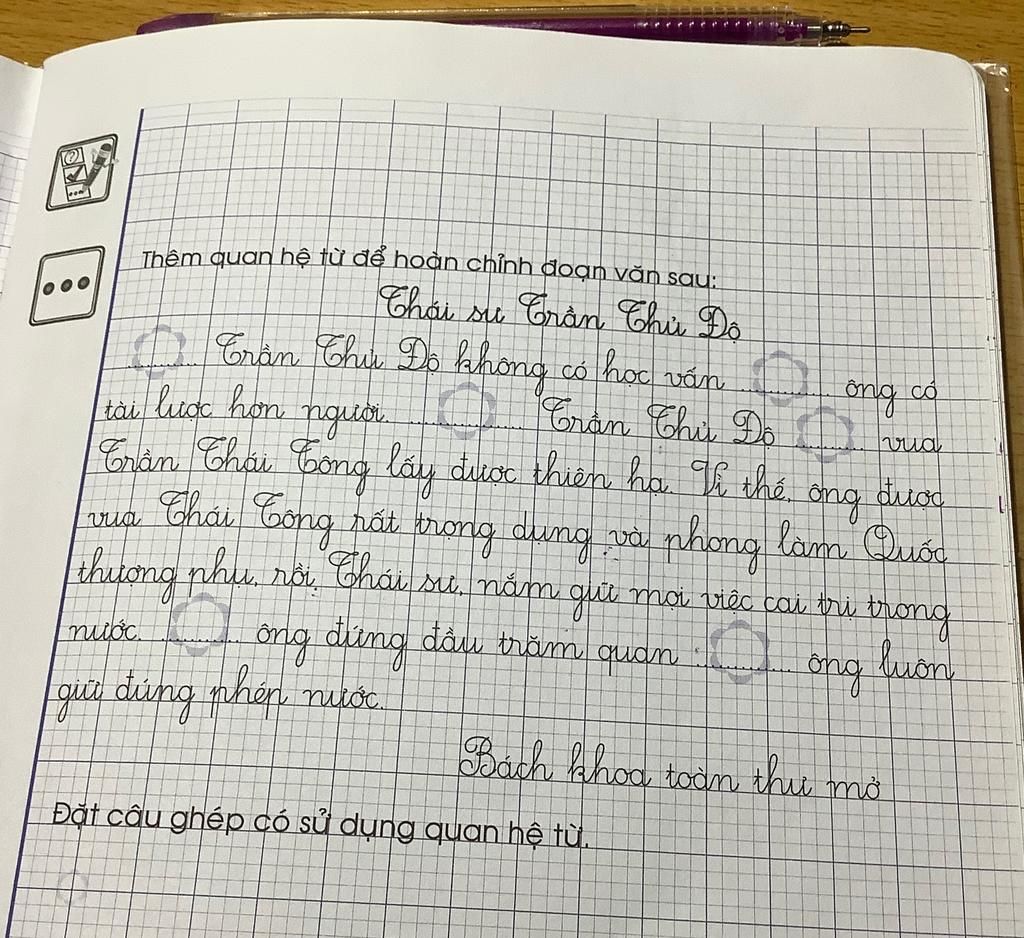 Thêm quan hệ từ để hoàn chỉnh đoạn văn sau:
Thái sư Trần Thủ Độ
........ Trần Thủ Độ không có học vấn ........ ông có
tài lược hơn người. ........ Trần Thủ Độ ........ vua
Trần Thái Tông lấy được thiên hạ. Vì thế, ông được
vua Thái Tông rất trọng dụng và phong làm Quốc
thượng phụ, rồi Thái sư, nắm giữ mọi việc cai trị trong
nước. ........ ông đứng đầu trăm quan ........ ông luôn
giữ đúng phép nước.
Bách khoa toàn thư mở
Đặt câu ghép có sử dụng quan hệ từ.